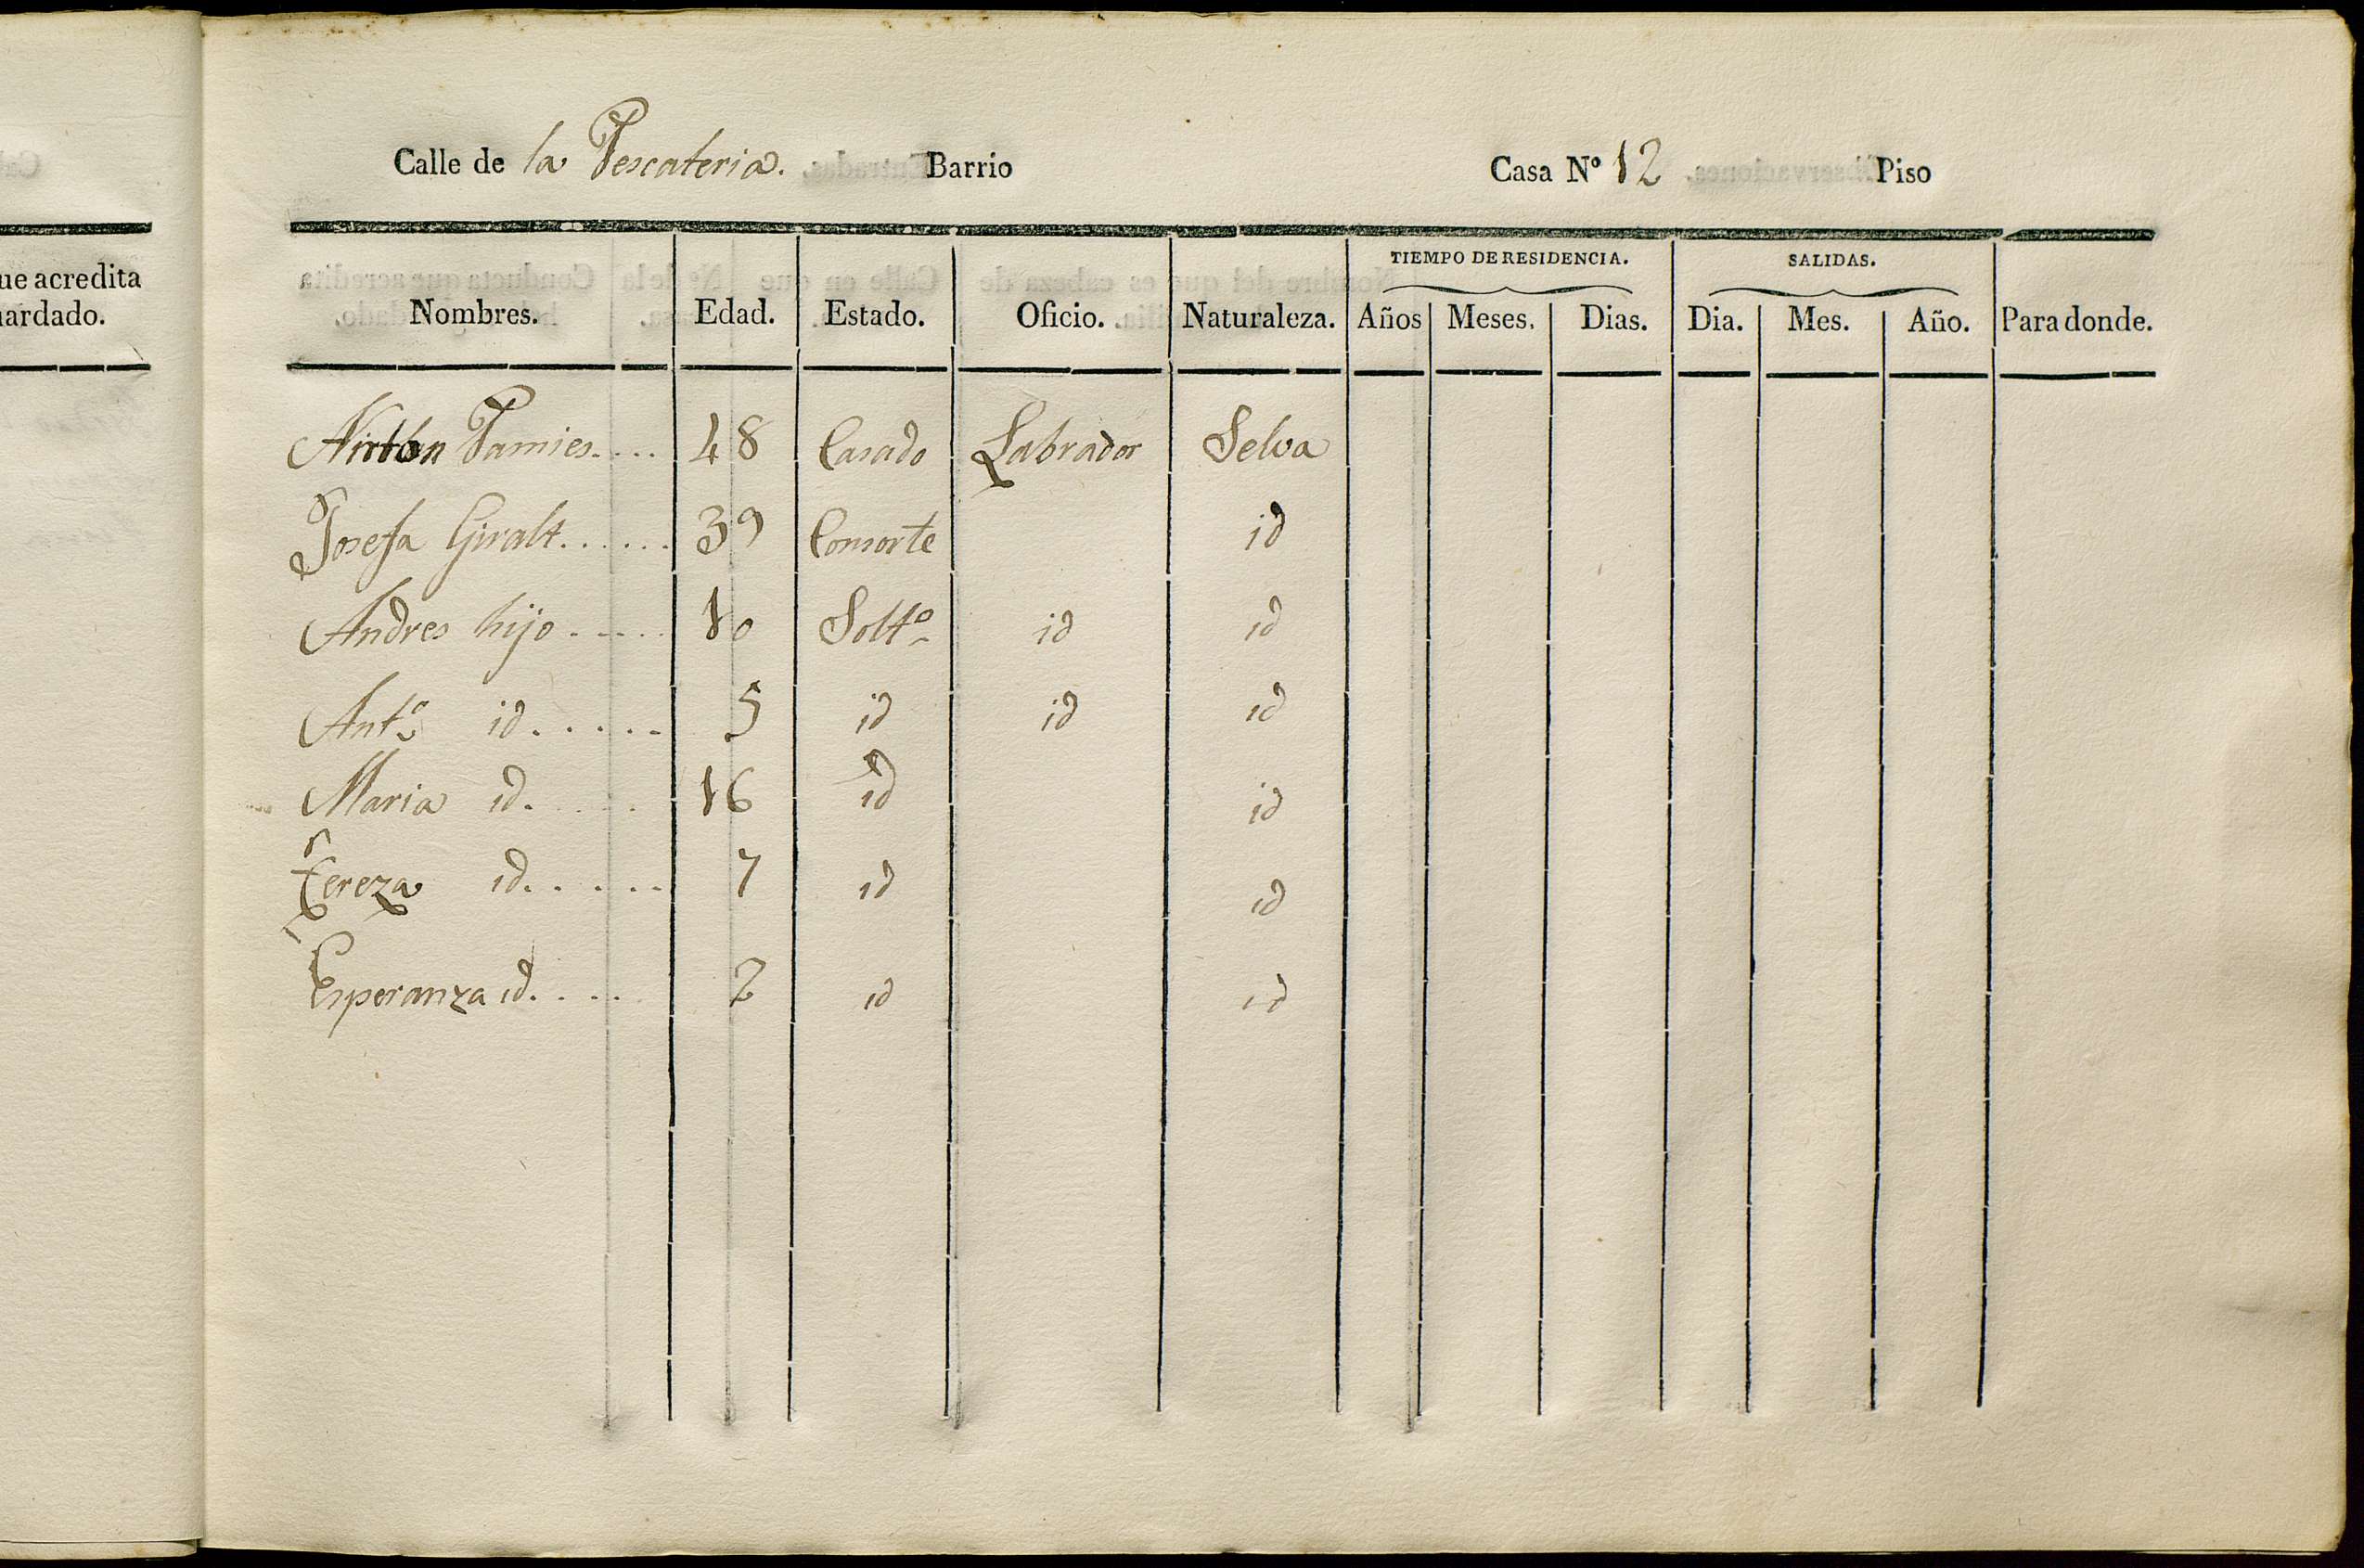 ue acredita
ardado.
Calle de la Pescateria. Barrio Casa Nº 12 Piso
TIEMPO DE RESIDENCIA. SALIDAS.
Nombres. Edad. Estado. Oficio. Naturaleza. Años Meses. Dias. Dia. Mes. Año. Para donde.
Pamies.... 48 Casado Labrador Selva
Josefa Giralt...... 39 Consorte id
Andres hijo..... 10 Soltº id id
Antº id..... 5 id id id
Maria id.... 16 id id
Tereza id..... 7 id id
Esperanza id.... 2 id id